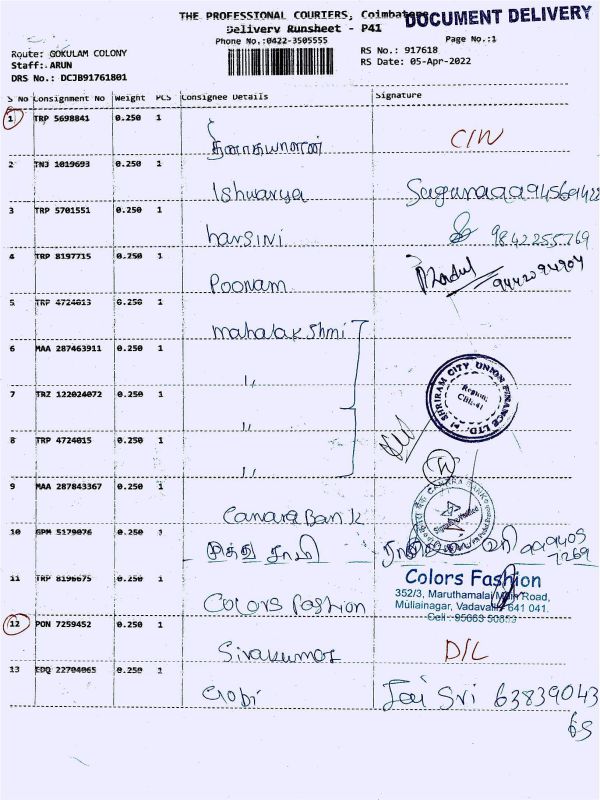 THE PROFESSIONAL COURIERS, Coimbatore
DOCUMENT DELIVERY
Delivery Runsheet - P41
Phone No.:0422-3505555
Page No.:1
Route: GOKULAM COLONY
RS No.: 917618
Staff: ARUN
RS Date: 05-Apr-2022
DRS No.: DCJB91761801
S No Consignment No Weight PCS Consignee Details Signature
1 TRP 5698841 0.250 1
C/N
2 TNJ 1019693 0.250 1
Ishwarya
3 TRP 5701551 0.250 1
harsini 9842255769
4 TRP 8197715 0.250 1
Poonam 9442094904
5 TRP 4724013 0.250 1
mahalakshmi
6 MAA 287463911 0.250 1
"
SHRIRAM CITY UNION FINANCE LTD.
Region:
CBE-41
7 TRZ 122024072 0.250 1
"
8 TRP 4724015 0.250 1
"
9 MAA 287843367 0.250 1
Canara Bank
CANARA BANK
10 GPM 5179076 0.250 1
முத்து சாமி
11 TRP 8196675 0.250 1
Colors Fashion
Colors Fashion
352/3, Maruthamalai Main Road,
Mullainagar, Vadavalli - 641 041.
12 PON 7259452 0.250 1
Sivakumar D/L
13 EDQ 22704065 0.250 1
Gobi Jai Sri 63839043
65